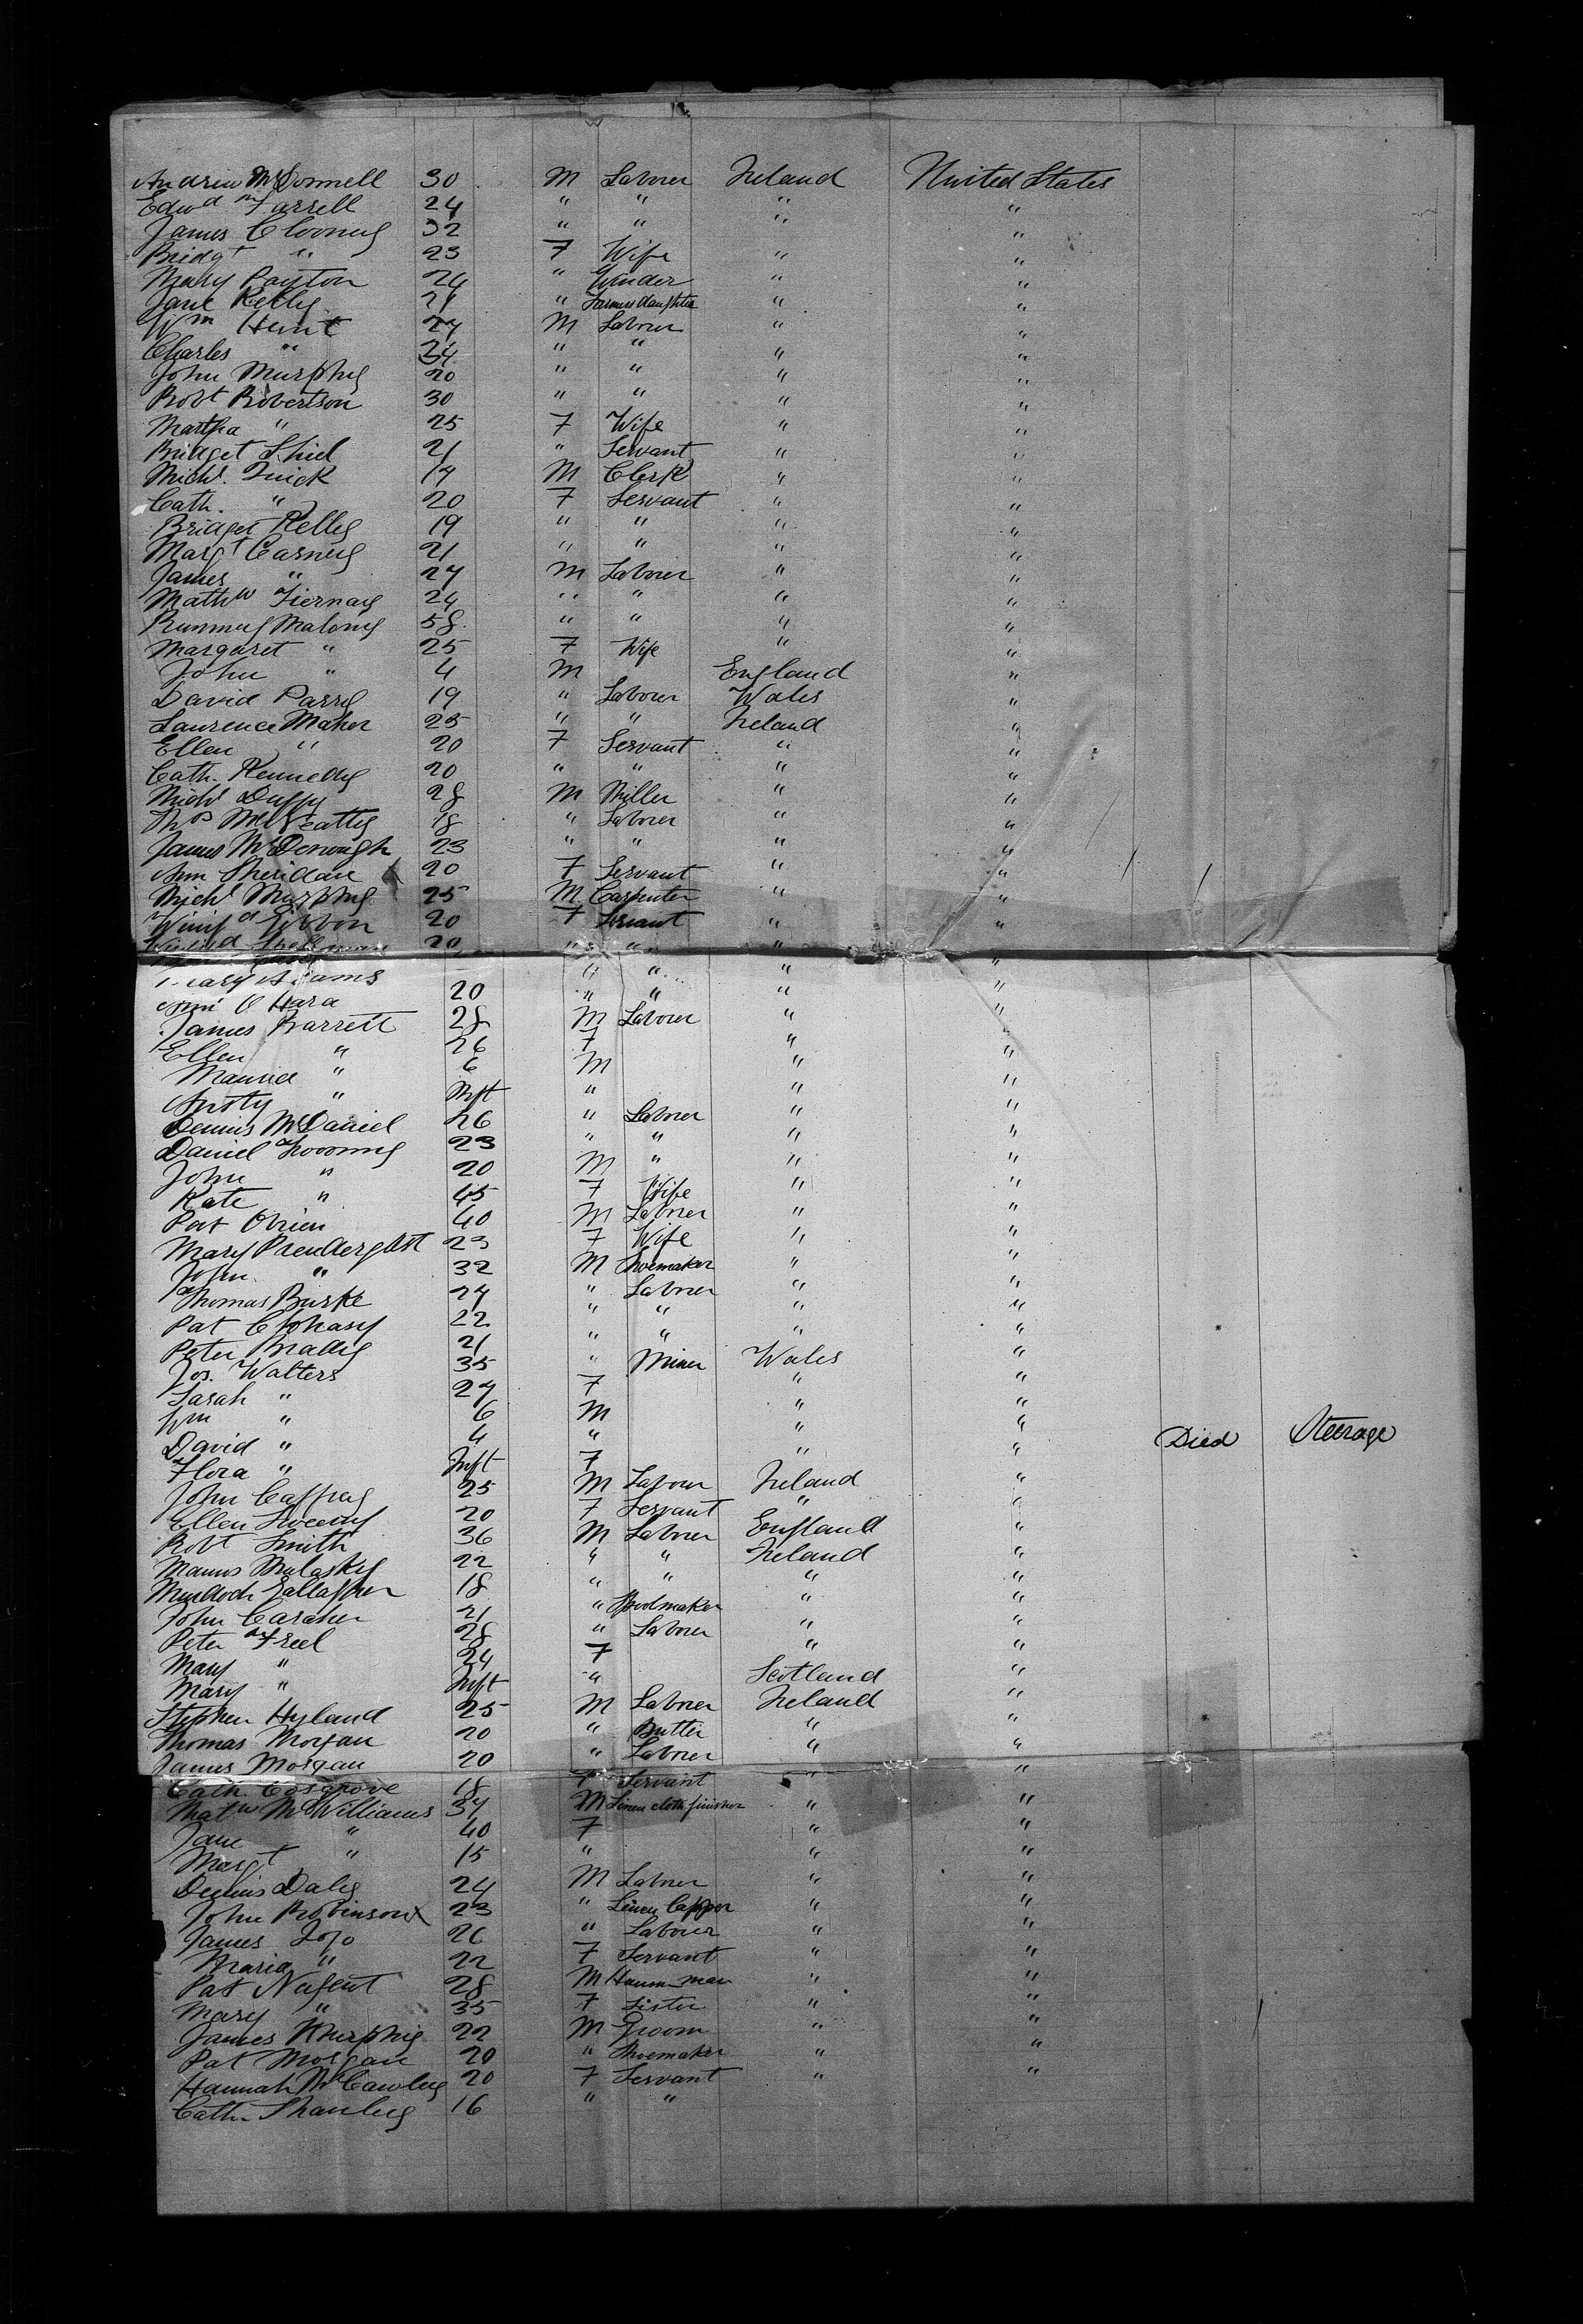 Andrew McDonnell 30 M Laborer Ireland United States
Edwd Farrell 24 " " " "
James Clooney 32 " " " "
Bridgt " 23 F Wife " "
Mary Payton 24 " Winder " "
Jane Kelly 21 " Farmers daughter " "
Wm Hunt 27 M Laborer " "
Charles " 24 " " " "
John Murphy 20 " " " "
Robt Robertson 30 " " " "
Martha " 25 F Wife " "
Bridget Shiel 21 " Servant " "
Michl. Quick 19 M Clerk " "
Cath. " 20 F Servant " "
Bridget Kelly 19 " " " "
Margt Carney 21 " " " "
James " 27 M Laborer " "
Mathw Tiernay 24 " " " "
Malony 58 " " " "
Margaret " 25 F Wife " "
John " 4 M England "
David Parry 19 " Labour Wales "
Laurence Maher 25 " " Ireland "
Ellen " 20 F Servant " "
Cath. Kennedy 20 " " " "
Michl Duffy 28 M Miller " "
Thos 18 " Laborer " "
James McDonough 23 " " " "
Ann Sheridan 20 F Servant " "
Michl Murphy 25 M Carpenter " "
Winifd Gibbon 20 F Servant " "
20 " " "
Mary " " " "
Ann O Hara 20 " " " "
James Barrett 28 M Laborer " "
Ellen " 26 F " "
" 6 M " "
" Inft " " "
Dennis McDaniel 26 " Laborer " "
Daniel 23 " " " "
John " 20 M " " "
Kate " 45 F Wife " "
Pat Obrien 40 M Laborer " "
Mary Prendergast 23 F Wife " "
John " 32 M Shoemaker " "
Thomas Burke 24 " Laborer " "
Pat 22 " " " "
Peter 21 " " " "
Jos. Walters 35 " Miner Wales "
Sarah " 27 F " "
Wm " 6 M " "
David " 4 " " "
Flora " Inft F " " Died Steerage
John Caffray 25 M Labour Ireland "
Ellen Sweeny 20 F Servant " "
Robt Smith 36 M Laborer England "
Manus 22 " " Ireland "
Murdoch Gallagher 18 " " " "
John Caraher 21 " " "
Peter Freel 28 " Laborer " "
Mary " 24 F " "
Mary " Inft " Scotland "
Stephen Hyland 25 M Laborer Ireland "
Thomas Morgan 20 " Butler " "
James Morgan 20 " Laborer " "
Cath. Cosgrove 18 F Servant " "
Matw McWilliams 37 M Linen cloth finisher " "
Jane " 40 F " "
Margt " 15 " " "
Dennis Daly 24 M Laborer " "
John Robinson 23 " Linen lapper " "
James 26 " Labourer " "
Maria " 22 F Servant " "
Pat Nugent 28 M " "
Mary " 35 F Sister " "
James Murphy 22 M Groom " "
Pat Morgan 20 " Shoemaker " "
Hannah McCawley 20 F Servant " "
Cath. Shanley 16 " "